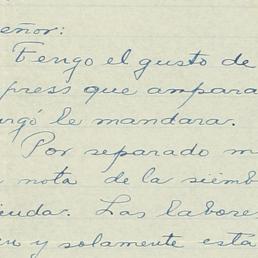 eñor:
Tengo el gusto de
press que ampara
argó le mandara.
Por separado m
nota de la siemb
euda. Las labore
en y solamente esta